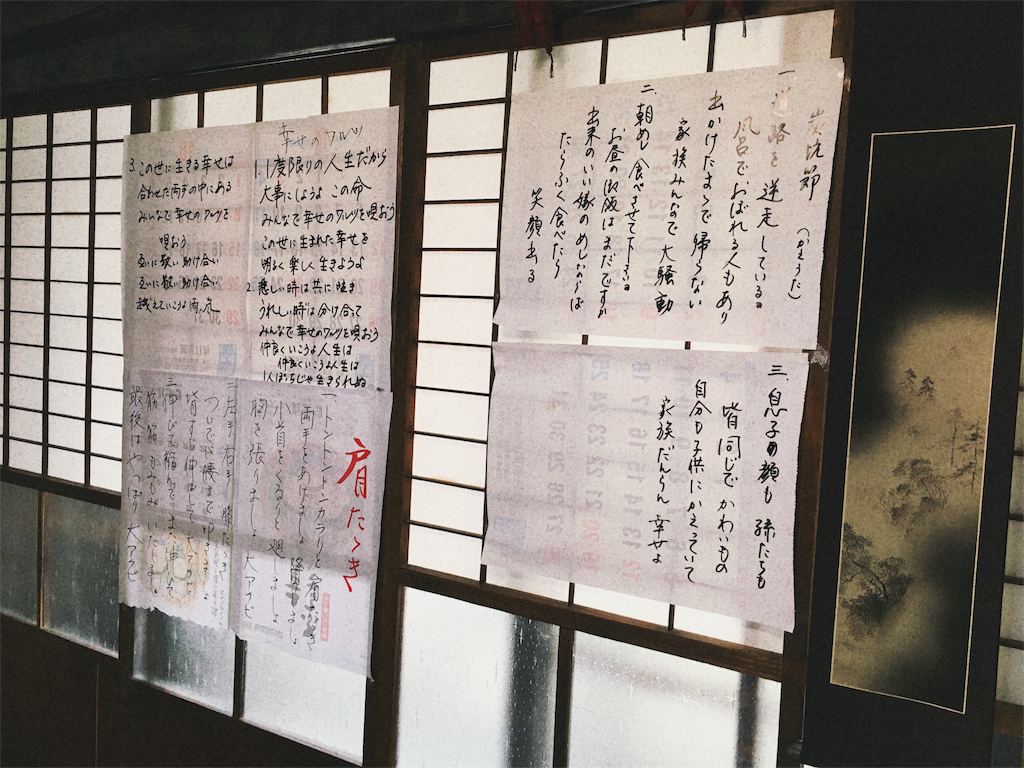 炭坑節
(かえうた)
一、道路を逆走しているヨ
風呂でおぼれる人もあり
出かけたまゝで帰らない
家族みんなで大騒動
二、朝めし食べさせて下さいヨ
お昼の御飯はまだですか
出来のいい嫁のめしならば
たらふく食べたら
笑顔出る
三、息子の顔も 孫たちも
皆同じで かわいもの
自分も子供にかえっていて
家族だんらん 幸せよ
幸せのワルツ
1. 1度限りの人生だから
大事にしようよ この命
みんなで幸せのワルツを唄おう
この世に生まれた幸せを
明るく楽しく生きようよ
2. 悲しい時は共に泣き
うれしい時は分け合って
みんなで幸せのワルツを唄おう
仲良くいこうよ人生は
仲良くいこうよ人生は
1人ぼっちじゃ生きられぬ
3. この世に生きる幸せは
合わせた両手の中にある
みんなで幸せのワルツを
唄おう
互いに敬い助け合い
互いに敬い助け合い
越えていこうよ
肩たゝき
一、トントントンカラリと
両手をあげましょ
小首をくるりと廻しましょ
胸を張りましょ大アクビ
二、左手右手
ついでに腰まで
背すじ伸ばして
三、伸びて縮んで また伸びて
最後はやっぱり大アクビ